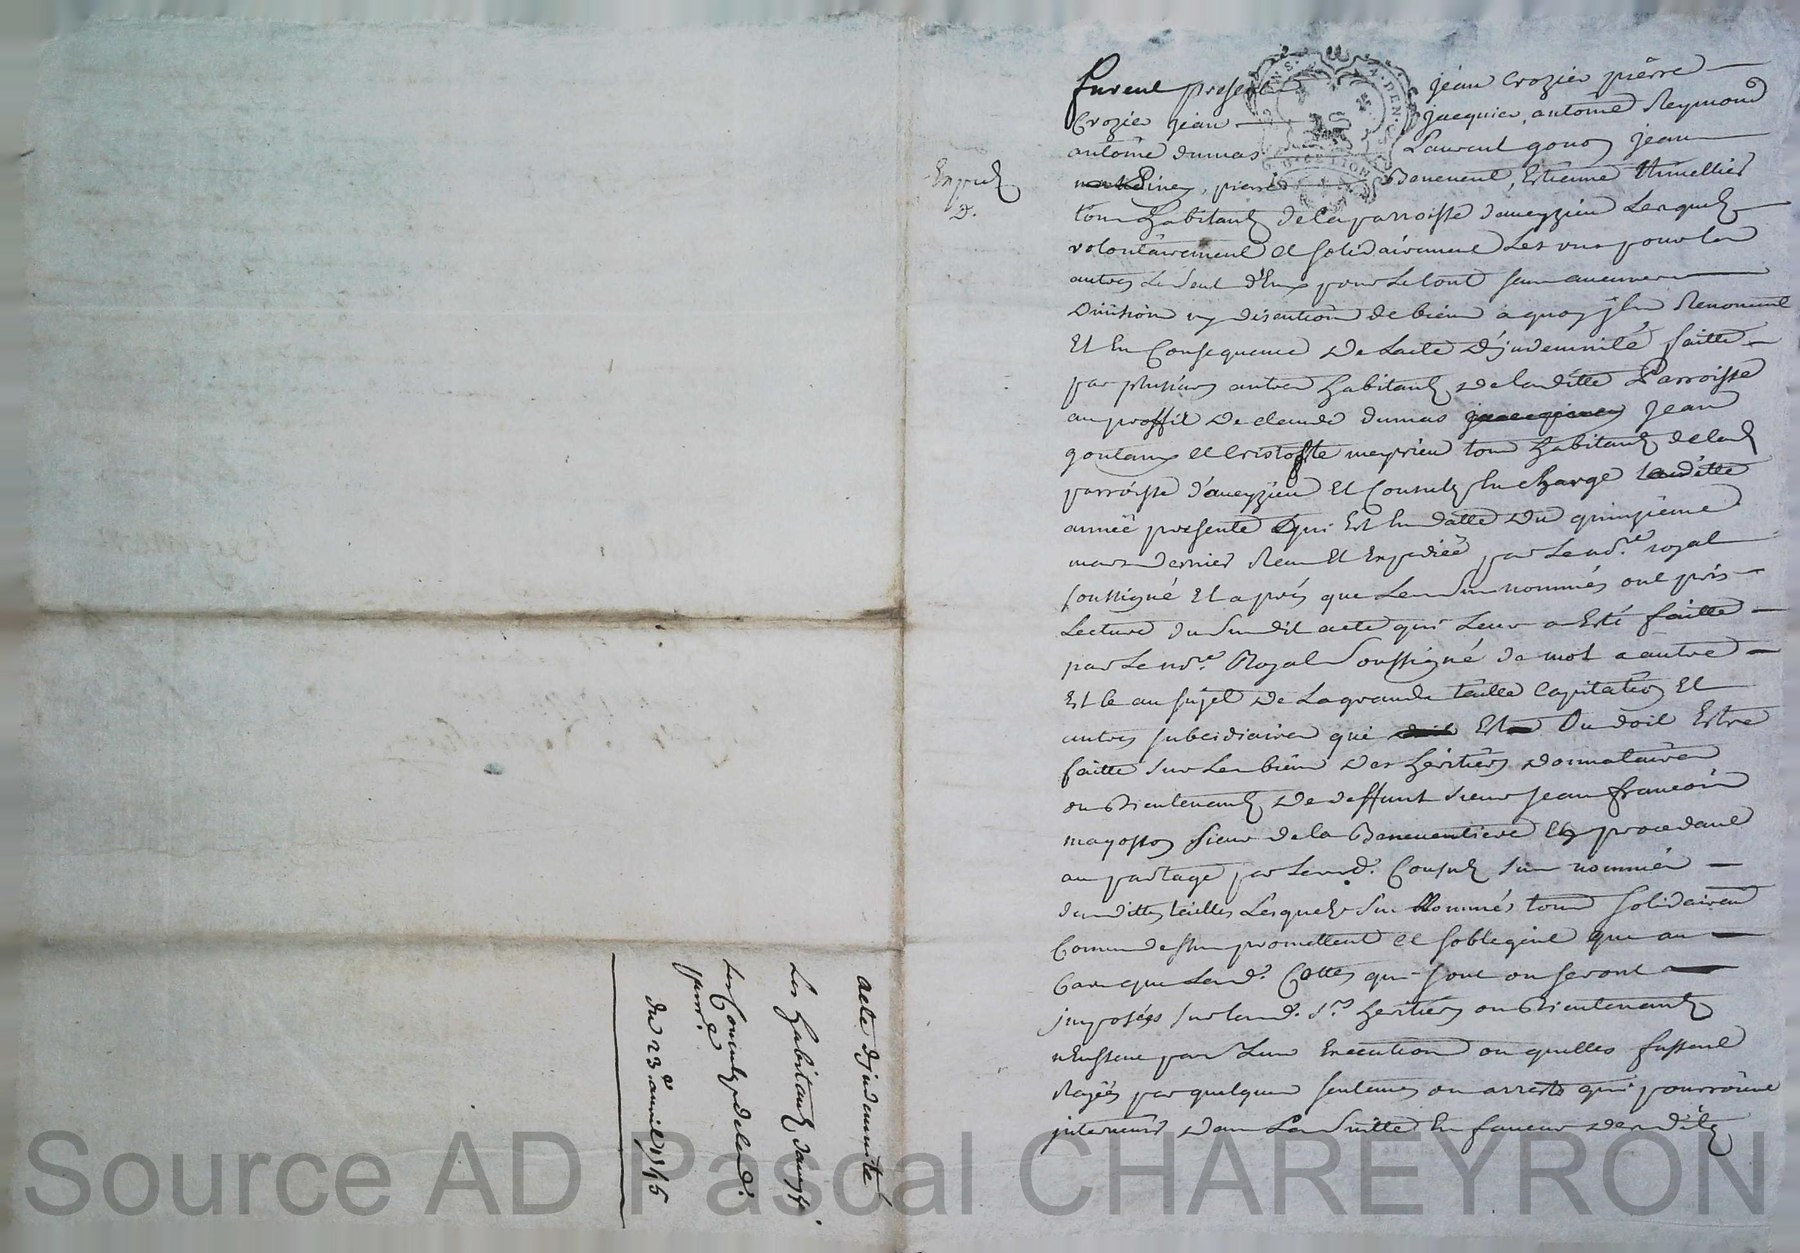 furent present jean Crozier pierre
Crozier jean jacquier, antoine Reymond
antoine dumas Laurent gonon jean
pierre Benevent, Estienne thinellier
Expedié
tous habitants de la parroisse daveyzieu Lesquels
volontairement et solidairement Les uns pour les
autres Le seul d'Eux pour Le tout sans aucune
Division ny discution de biens a quoy ils Renoncent
Et En Consequence De Lacte D'jndemnité faitte
par plusieurs autres habitants de laditte Parroisse
au proffit De claude dumas jean
goutaux et Cristofle meyrieu tous habitants de lad
parroisse d'aveyzieu Et Consuls En charge laditte
année presente qui Est En datte Du quinzieme
mars dernier Receu Et Expediée par Le nore royal
soussigné Et après que Les Sus nommés ont pris
Lecture du Susdit acte qui Leur a Esté faitte
par Le nore Royal Soussigné de mot a autre
Et ce au sujet De La grande taille Capitation Et
autres subcidiaires qui Est Ou doit Estre
faitte sur Les biens Des heritiers donnataires
ou Bientenants De deffunt sieur jean francois
mayosson sieur de la Beneventiere En procedant
au partage par Lesd. Consuls sus nommés
desdittes tailles Lesquels Sus Nommés tous solidaires
Comme dessus promettent et soblegent que au
Cas que Lesd. Cottes qui sont ou seront
jmposées sur lesd. Srs heritiers ou Bientenants
n'Eussent pas Leur Execution ou quelles fussent
Rayées par quelques sentences ou arrests qui pourroient
jntervenir dans La Suitte En faveur desdits
acte djndamnité
Les habitants daveyz.
Les Consuls de lad.
parre.
du 23e avril 1745
Source AD Pascal CHAREYRON